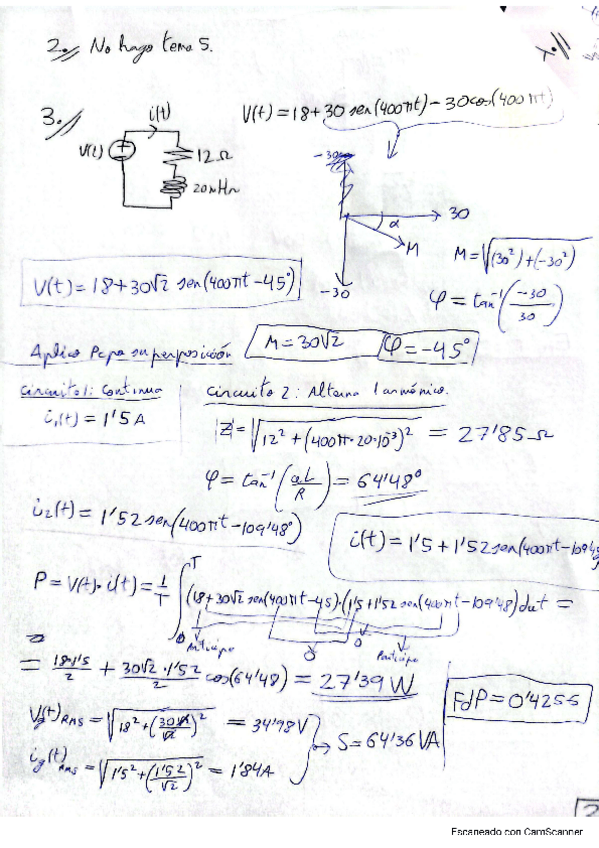 2.// No hago tema 5.
3.//
V(t) = 18 + 30 sen(400πt) - 30cos(400πt)
i(t)
V(t)
12Ω
20mHn
-30
30
α
M
-30
M = √(30²)+(-30²)
φ = tan⁻¹(-30/30)
V(t) = 18 + 30√2 sen(400πt - 45°)
M = 30√2
φ = -45°
Aplico superposición
Circuito 1: Continua
i₁(t) = 1'5 A
Circuito 2: Alterna 1 armónico.
|Z| = √12² + (400π·20·10⁻³)² = 27'85 Ω
φ = tan⁻¹(ωL/R) = 64'48°
i₂(t) = 1'52 sen(400πt - 109'48°)
i(t) = 1'5 + 1'52 sen(400πt - 109'48
P = V(t)·i(t) = 1/T ∫₀ᵀ (18 + 30√2 sen(400πt - 45)·(1'5 + 1'52 sen(400πt - 109'48)dωt =
0
0
= 18·1'5/2 + 30√2·1'52/2 cos(64'48) = 27'39 W
FdP = 0'4255
Vg(t)RMS = √18² + (30√2/√2)² = 34'98 V
S = 64'36 VA
ig(t)RMS = √1'5² + (1'52/√2)² = 1'84 A
2
Escaneado con CamScanner